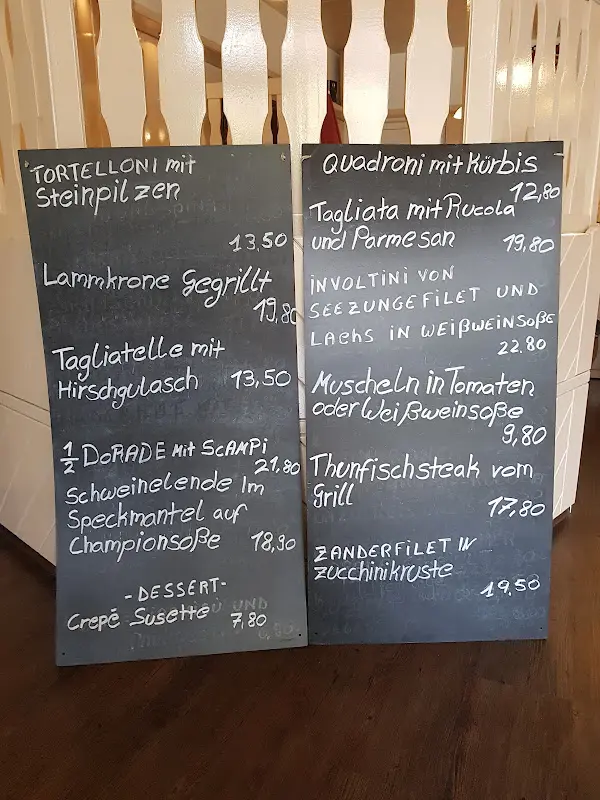 TORTELLONI mit
Steinpilzen
13,50
Lammkrone Gegrillt
19,80
Tagliatelle mit
Hirschgulasch 13,50
1/2 DORADE Mit SCAMPi
21,80
Schweinelende Im
Speckmantel auf
Championsoße 18,90
-DESSERT-
Crepé Susette 7,80
Quadroni mit Kürbis
12,80
Tagliata mit Rucola
und Parmesan 19,80
iNVOLTiNi VON
SEEZUNGEFiLET UND
LACHS IN WEIßWEINSOßE
22.80
Muscheln in Tomaten
oder Weißweinsoße
9,80
Thunfischsteak vom
Grill
17,80
ZANDERFILET IN
Zucchinikruste
19,50